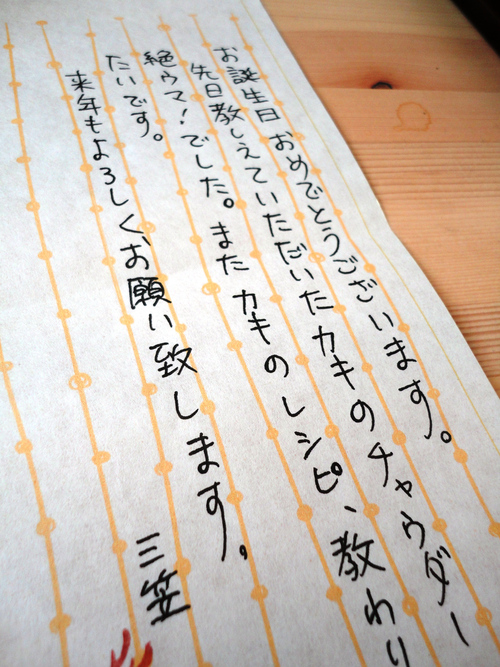 お誕生日おめでとうございます。
先日教しえていただいたカキのチャウダー
絶ウマ！でした。またカキのレシピ、教わり
たいです。
来年もよろしくお願い致します。
三笠